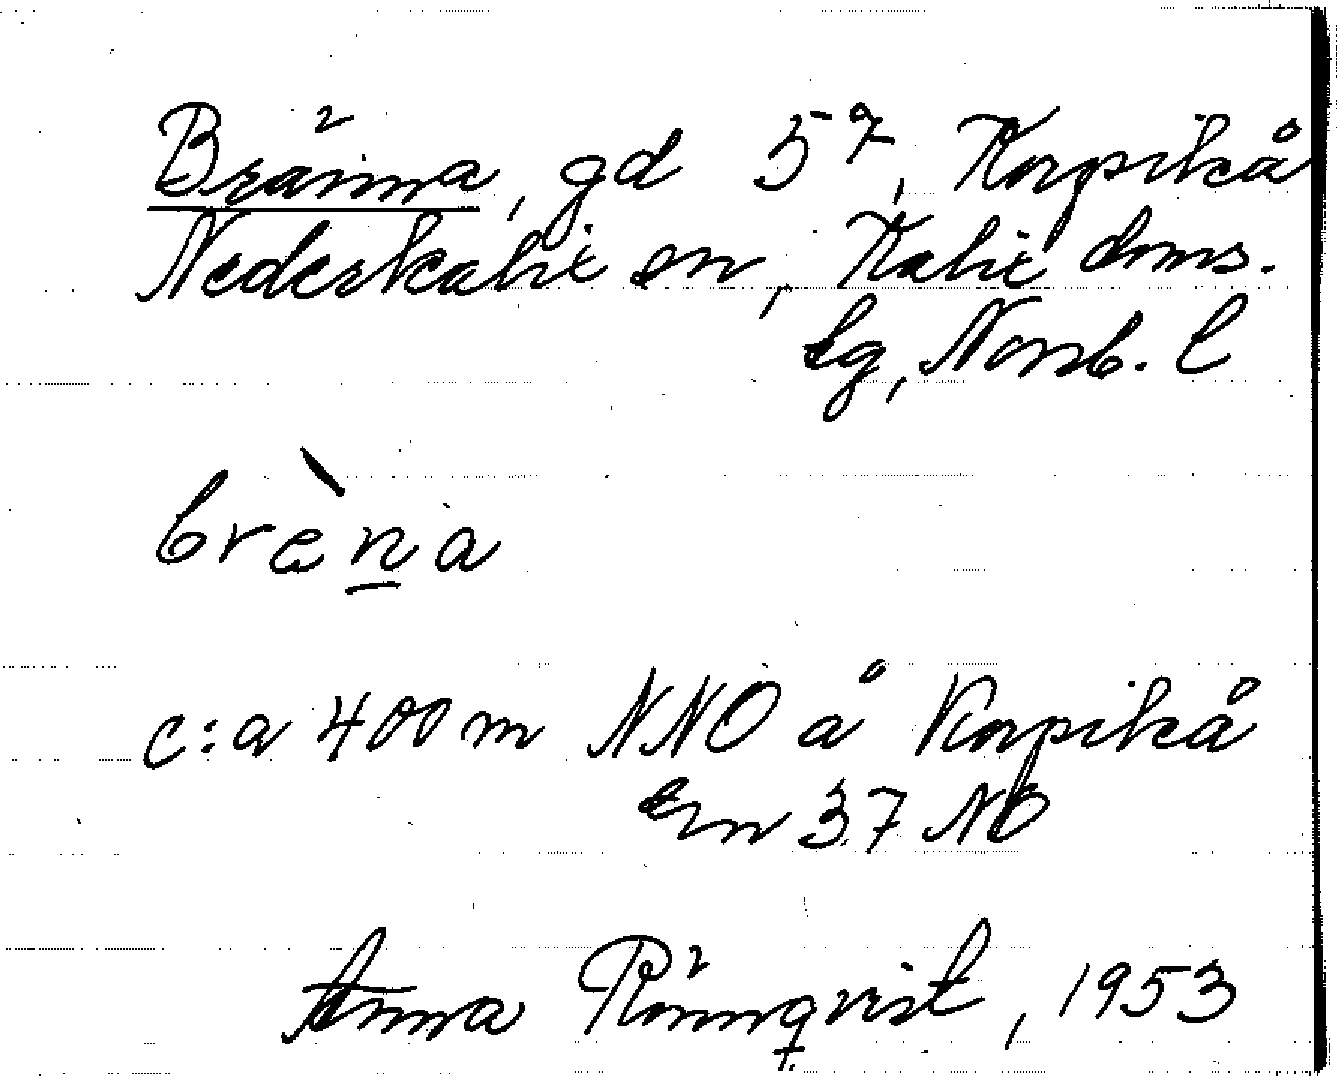 Bränna, gd 5⁷, Korpikå
Nederkalix sn, Kalix doms.
lg, Norrb. l
brèna
c:a 400 m NNO å Korpikå
En 37 NO
Anna Rönnqvist, 1953